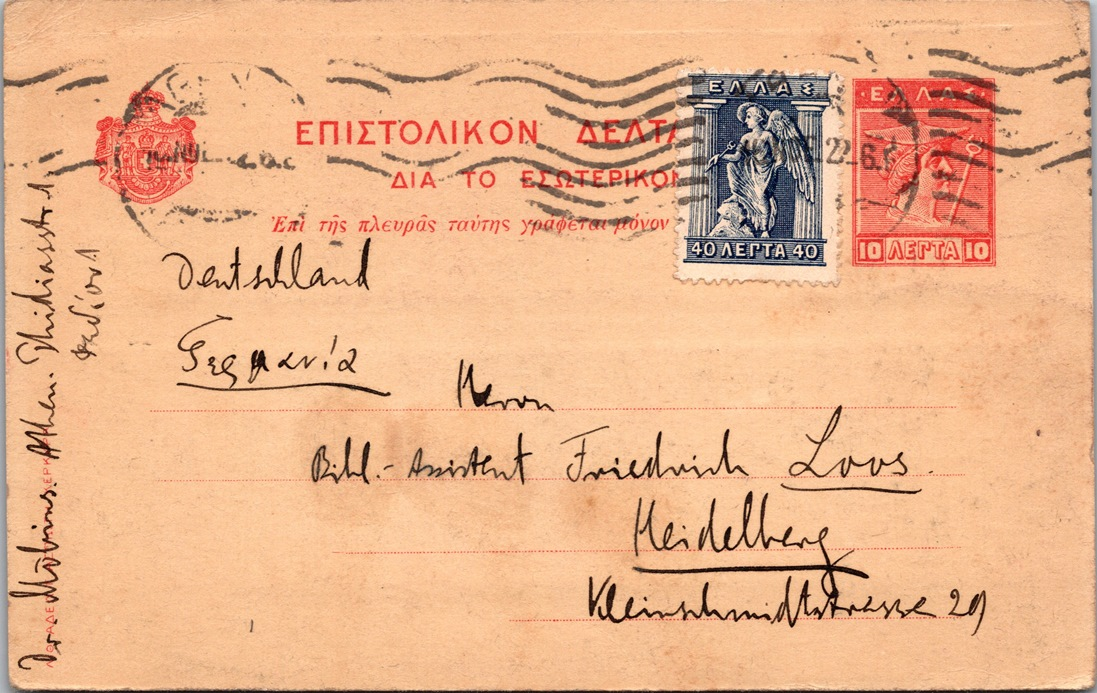 ΕΠΙΣΤΟΛΙΚΟΝ ΔΕΛΤΑ
ΔΙΑ ΤΟ ΕΣΩΤΕΡΙΚΟΝ
Ἐπὶ τῆς πλευρᾶς ταύτης γράφεται μόνον
ΕΛΛΑΣ
40 ΛΕΠΤΑ 40
ΕΛΛΑΣ
10 ΛΕΠΤΑ 10
Deutschland
Γερμανία
Herrn
Bibl.-Assistent Friedrich Loos.
Heidelberg
Kleinschmidtstrasse 29
Dr. Möbius. Athen. Phidiasstr. 1.
Φειδίου 1